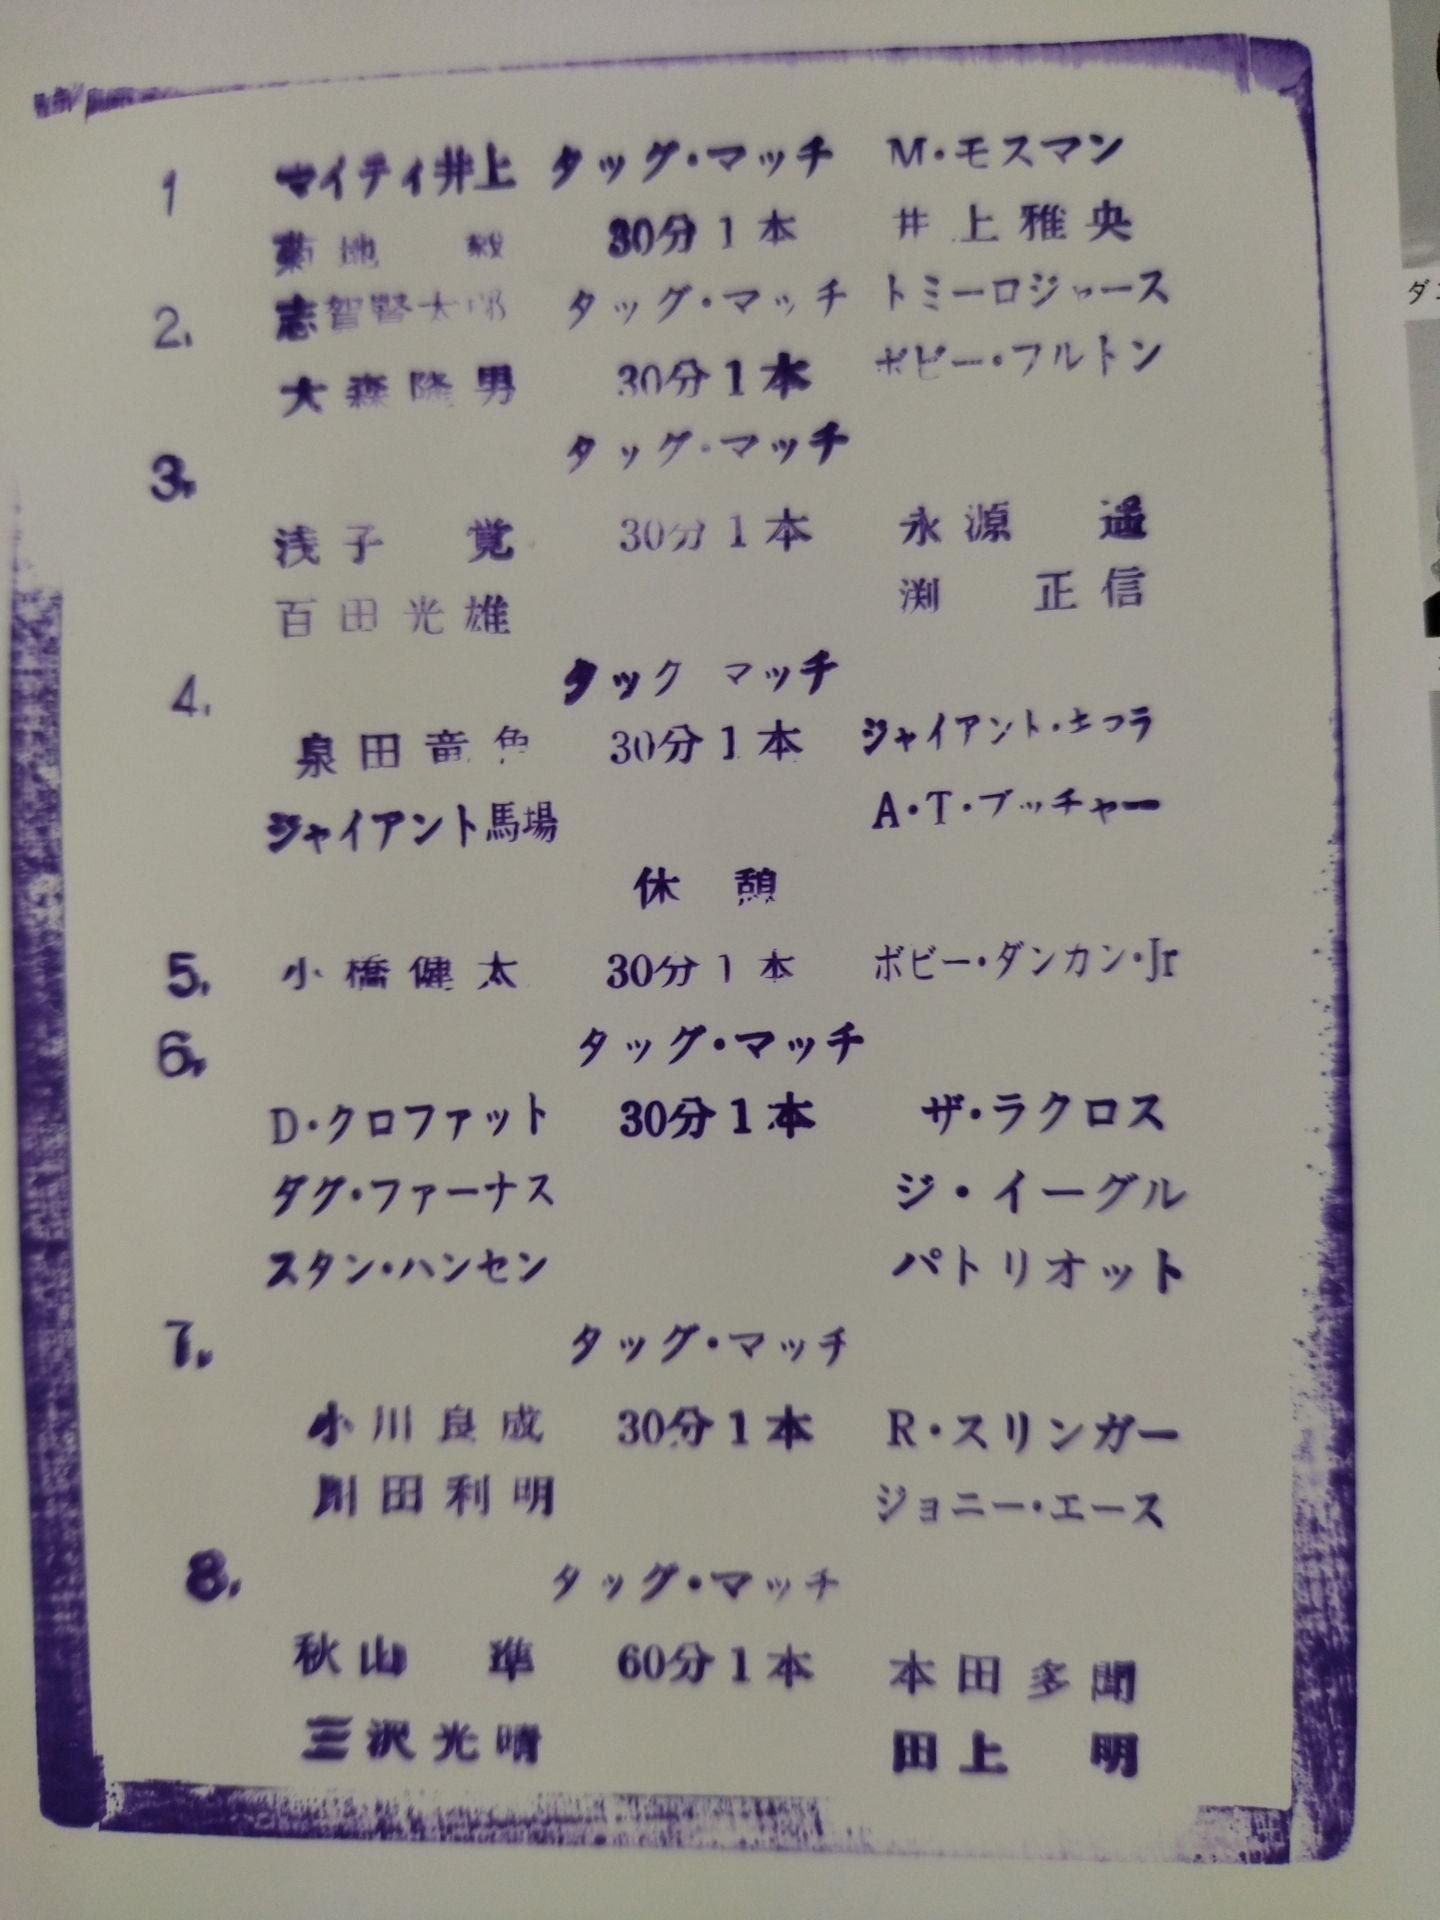 1 マイティ井上 タッグ・マッチ M・モスマン
菊地 毅 30分1本 井上雅央
2. 志賀賢太郎 タッグ・マッチ トミーロジャース
大森隆男 30分1本 ボビー・フルトン
タッグ・マッチ
3.
浅子 覚 30分1本 永源 遥
百田光雄 渕 正信
タック マッチ
4.
泉田竜角 30分1本 ジャイアント・キマラ
ジャイアント馬場 A・T・ブッチャー
休 憩
5. 小橋健太 30分1本 ボビー・ダンカン・Jr
6. タッグ・マッチ
D・クロファット 30分1本 ザ・ラクロス
ダグ・ファーナス ジ・イーグル
スタン・ハンセン パトリオット
7. タッグ・マッチ
小川良成 30分1本 R・スリンガー
川田利明 ジョニー・エース
8. タッグ・マッチ
秋山 準 60分1本 本田多聞
三沢光晴 田上 明
ダ